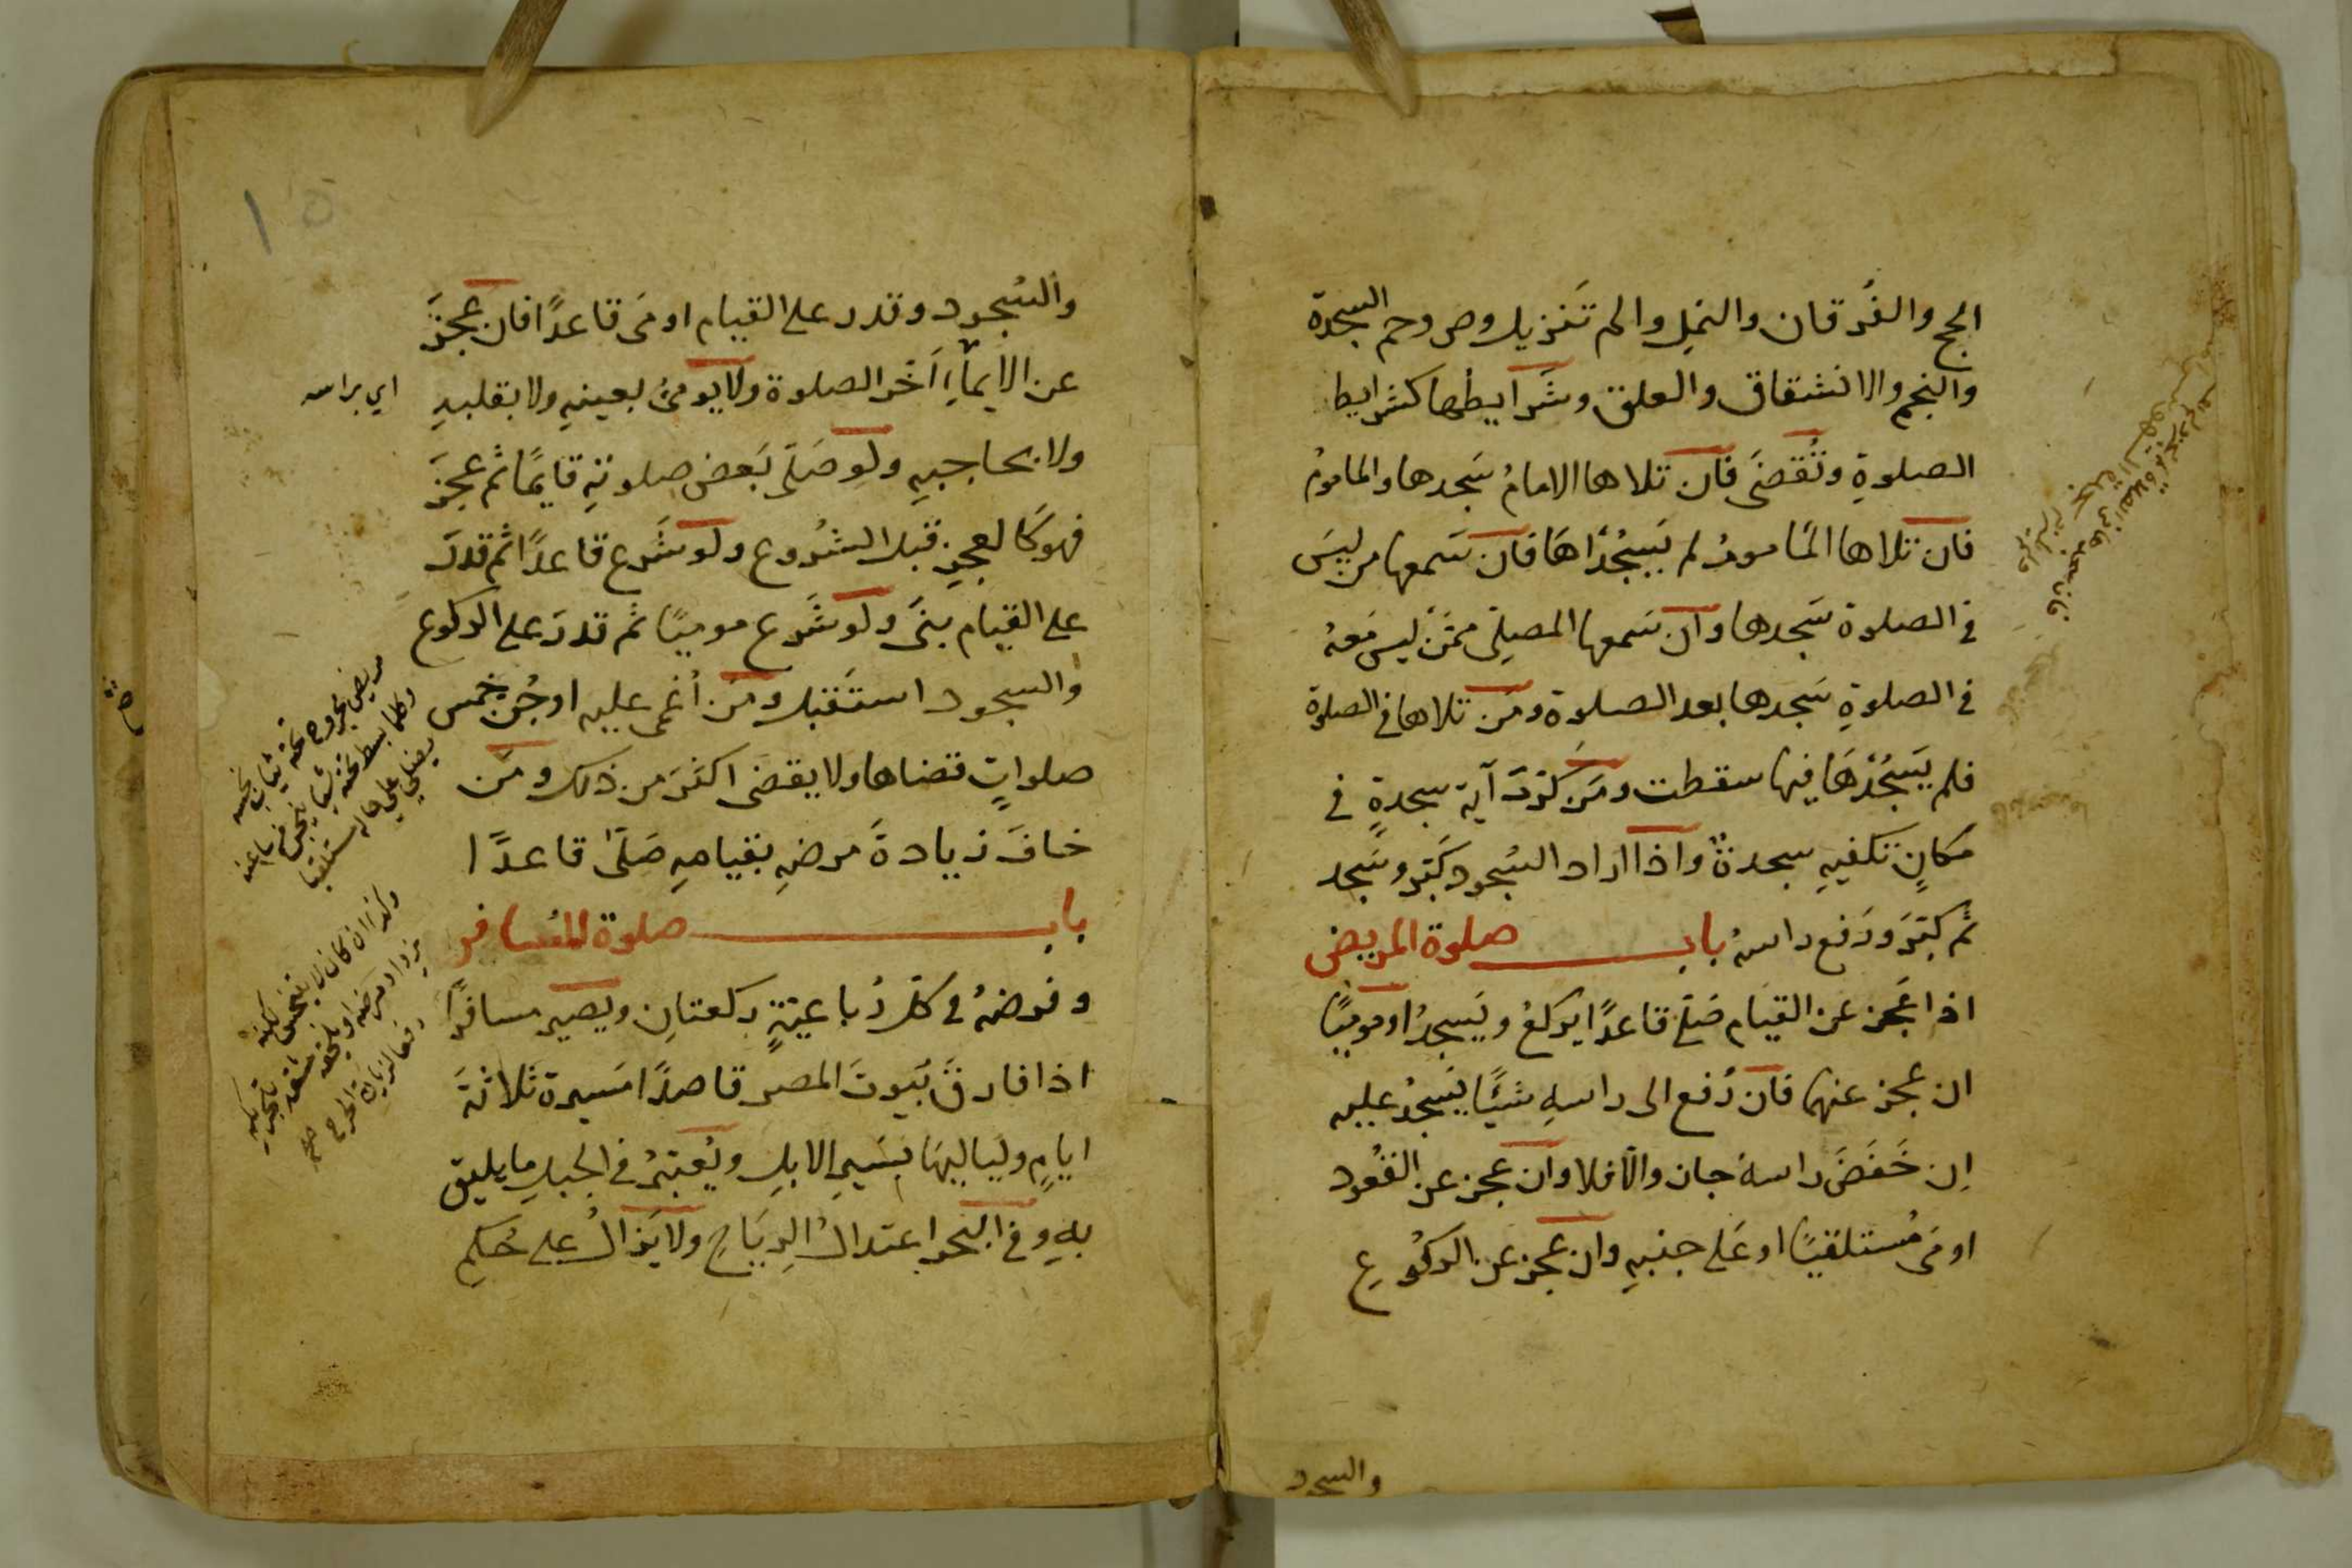 الحج والفُرقان والنمل والم تَنزيل وص وحم السجدة
والنجم والانشقاق والعلق وشَرايطها كشرايط
الصلوةِ وتُقضَى فان تلاها الامامُ سَجدها والمامومُ
فان تلاها المامومُ لم يَسجُدَاهَا فان سَمعها من ليسَ
في الصلوة سَجدها وان سَمعها المصلِّى ممّن ليس مَعهُ
في الصلوةِ سَجدها بعد الصلوة ومَن تلاها في الصلوة
فلم يَسجُدْهَا فيها سقطت ومَن كرّرَ آية سجدةٍ في
مَكانٍ تكفيهِ سجدةٌ واذا اراد السُجود كَبّر وسَجد
ثم كبّرَ ورَفع راسهُ باب صلوة المريض
اذا عَجز عن القيَام صَلّى قاعدًا يركعُ ويَسجدُ او موميًا
ان عجز عنهما فان رُفع الى راسهِ شيئًا يَسجدُ عليه
اِن خَفَضَ راسهُ جاز والّا فلا وان عجز عن القعُود
اومَى مُستلقيًا او عَلى جنبهِ وان عجز عن الركُوعِ
والسجود
والسُجود وقدر على القيام اومَى قاعدًا فان عجَزَ
عن الايمآءِ اَخّر الصلوة ولا يومئُ بعينهِ ولا بقلبهِ
اي براسه
ولا بحاجبيهِ ولو صَلّى بَعض صلوتهِ قايمًا ثم عجَزَ
فهو كَالعجزِ قبل الشُروع ولو شَرع قاعدًا ثم قدرَ
على القيام بنَى ولو شَرع موميًا ثم قدرَ على الركوع
والسجود استَقبل ومَن اُغمى عليه او جُنّ خمس
صلواتٍ قضاها ولا يقضى اكثرَ من ذلك ومَن
خافَ زيادةَ مرضِهِ بقيامهِ صَلّى قاعدًا
باب صلوة المُسافر
وفرضهُ في كلّ رُباعيّةٍ ركعتانِ ويصير مسافرًا
اذا فارقَ بُيوتَ المصر قاصدًا مَسيرة ثلاثةَ
ايامٍ وليَاليهَا بسَيرِ الابلِ ويُعتبَرُ في الجبلِ ما يليق
بهِ وفي البَحر اعتدالُ الرِيَاحِ ولا يَزالُ على حُكمِ
مريض مجروح تحته ثياب نجسه
وكلما بسط تحته شيا تنجس من ساعته
يصلي على حاله مستلقيا
وكذا ان كان لا يتنجس لكنه
يزداد مرضه او يلحقه مشقه